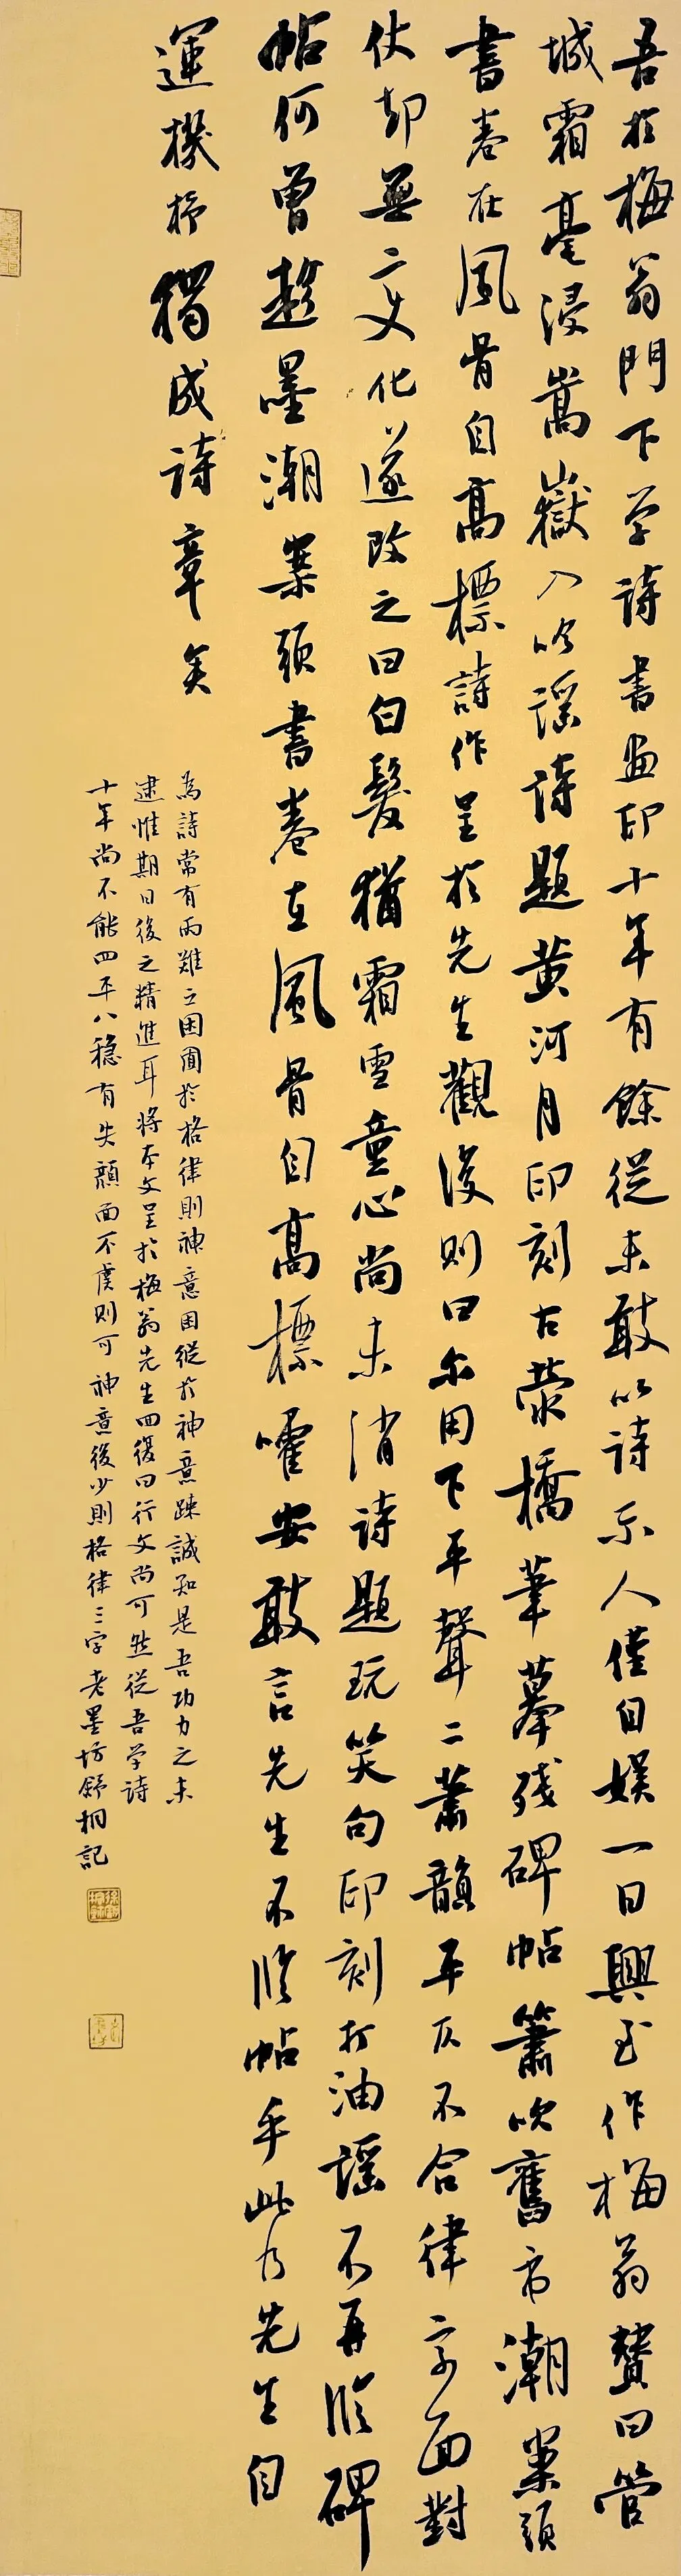 吾於梅翁門下学詩書畫印十年有餘從未敢以詩示人僅自娱一日興至作梅翁贊曰管
城霜毫浸嵩嶽入吟謡诗題黄河月印刻古滎橋筆摹残碑帖簫吹舊市潮案頭
書卷在風骨自高標詩作呈於先生觀後則曰尔用下平聲二蕭韻平仄不合律字面對
仗却無文化遂改之曰白髮猶霜雪童心尚未消诗題玩笑句印刻打油謡不再临碑
帖何曾趁墨潮案頭書卷在風骨自高標嚯安敢言先生不临帖乎此乃先生自
運機杼獨成诗章矣
為詩常有兩難立困囿於格律則神意困縱於神意踈誠知是吾功力之未
逮惟期日後之精進耳將本文呈於梅翁先生回復曰行文尚可然從吾学詩
十年尚不能四平八穏有失顔面不虞則可神意後少則格律三字老墨坊舒桐記